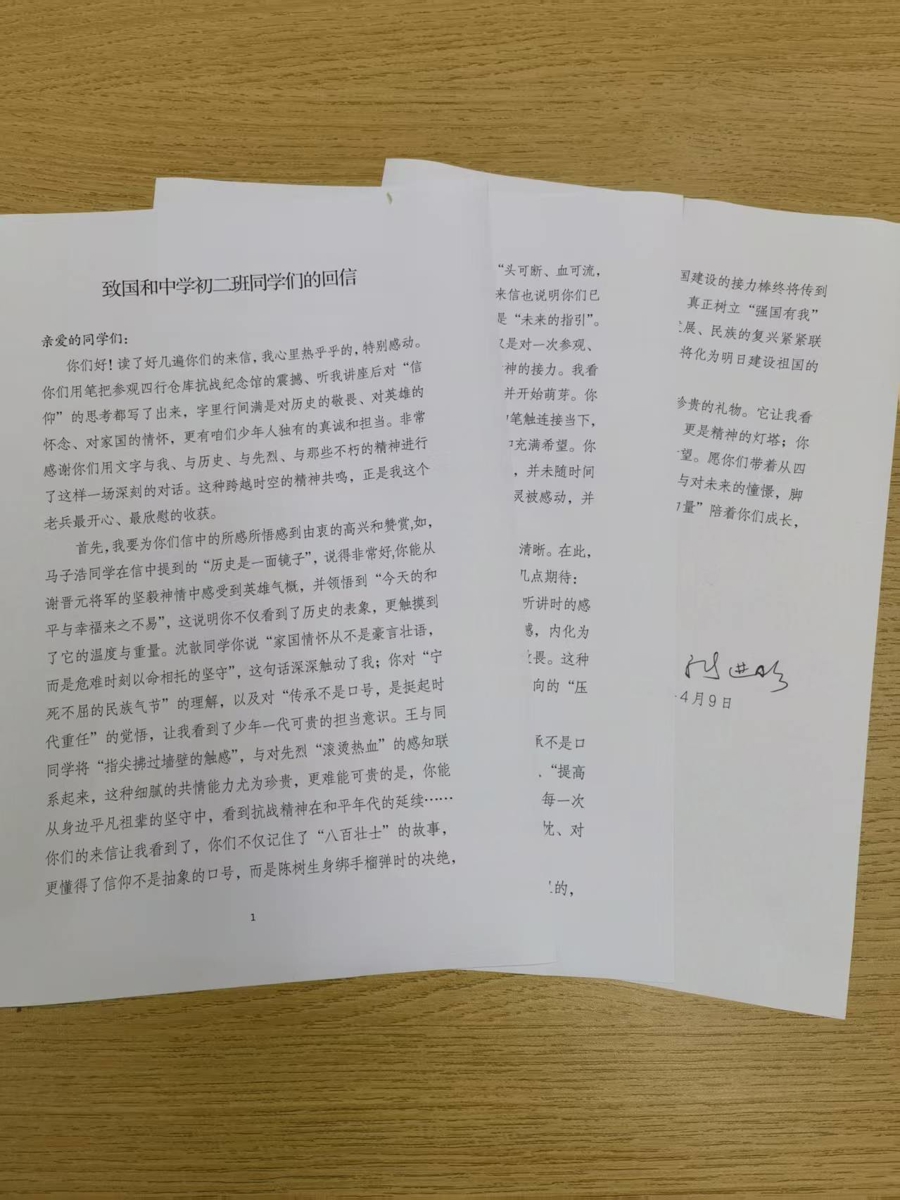 致国和中学初二班同学们的回信
亲爱的同学们：
你们好！读了好几遍你们的来信，我心里热乎乎的，特别感动。
你们用笔把参观四行仓库抗战纪念馆的震撼、听我讲座后对“信
仰”的思考都写了出来，字里行间满是对历史的敬畏、对英雄的
怀念、对家国的情怀，更有咱们少年人独有的真诚和担当。非常
感谢你们用文字与我、与历史、与先烈、与那些不朽的精神进行
了这样一场深刻的对话。这种跨越时空的精神共鸣，正是我这个
老兵最开心、最欣慰的收获。
首先，我要为你们信中的所感所悟感到由衷的高兴和赞赏,如，
马子浩同学在信中提到的“历史是一面镜子”，说得非常好,你能从
谢晋元将军的坚毅神情中感受到英雄气概，并领悟到“今天的和
平与幸福来之不易”，这说明你不仅看到了历史的表象，更触摸到
了它的温度与重量。沈歆同学你说“家国情怀从不是豪言壮语，
而是危难时刻以命相托的坚守”，这句话深深触动了我；你对“宁
死不屈的民族气节”的理解，以及对“传承不是口号，是挺起时
代重任”的觉悟，让我看到了少年一代可贵的担当意识。王与同
同学将“指尖拂过墙壁的触感”，与对先烈“滚烫热血”的感知联
系起来，这种细腻的共情能力尤为珍贵，更难能可贵的是，你能
从身边平凡祖辈的坚守中，看到抗战精神在和平年代的延续……
你们的来信让我看到了，你们不仅记住了“八百壮士”的故事，
更懂得了信仰不是抽象的口号，而是陈树生身绑手榴弹时的决绝，
1
“头可断、血可流，
来信也说明你们已
是“未来的指引”。
又是对一次参观、
神的接力。我看
并开始萌芽。你
笔触连接当下，
充满希望。你
，并未随时间
灵被感动，并
清晰。在此，
几点期待：
听讲时的感
，内化为
畏。这种
向的“压
不是口
“提高
每一次
、对
的，
国建设的接力棒终将传到
真正树立“强国有我”
展、民族的复兴紧紧联
将化为明日建设祖国的
珍贵的礼物。它让我看
更是精神的灯塔；你
望。愿你们带着从四
与对未来的憧憬，脚
量”陪着你们成长，
4月9日